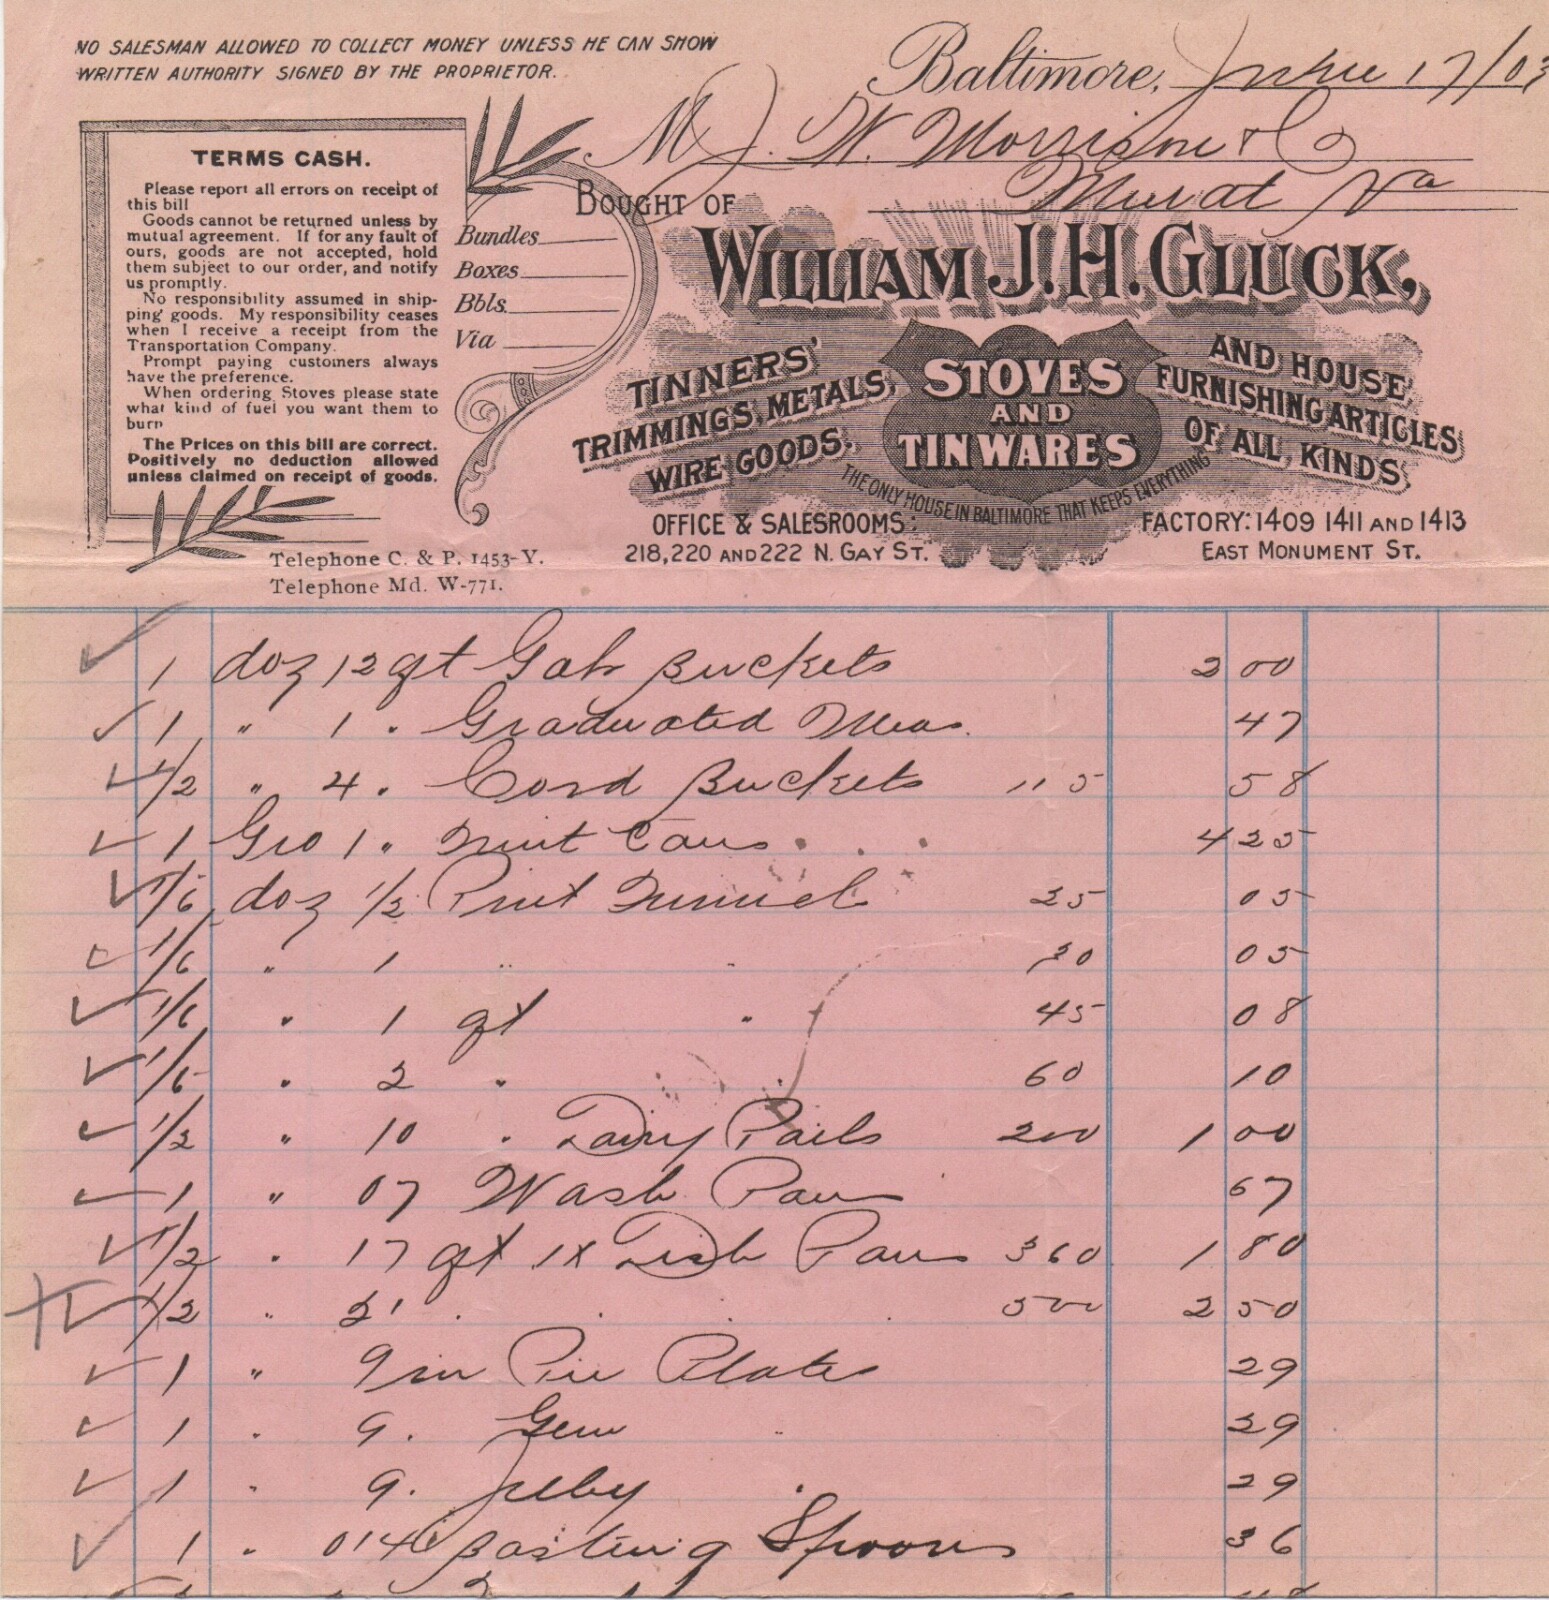 NO SALESMAN ALLOWED TO COLLECT MONEY UNLESS HE CAN SHOW
WRITTEN AUTHORITY SIGNED BY THE PROPRIETOR.
Baltimore, June 17/03
M J. W. Morrison & Co
Murat Va
TERMS CASH.
Please report all errors on receipt of
this bill
Goods cannot be returned unless by
mutual agreement. If for any fault of
ours, goods are not accepted, hold
them subject to our order, and notify
us promptly.
No responsibility assumed in ship-
ping goods. My responsibility ceases
when I receive a receipt from the
Transportation Company.
Prompt paying customers always
have the preference.
When ordering Stoves please state
what kind of fuel you want them to
burn
The Prices on this bill are correct.
Positively no deduction allowed
unless claimed on receipt of goods.
Bundles
Boxes
Bbls.
Via
BOUGHT OF
WILLIAM J. H. GLUCK,
TINNERS'
TRIMMINGS, METALS,
WIRE GOODS.
STOVES
AND
TINWARES
AND HOUSE
FURNISHING ARTICLES
OF ALL KINDS
THE ONLY HOUSE IN BALTIMORE THAT KEEPS EVERYTHING
OFFICE & SALESROOMS:
218, 220 AND 222 N. GAY ST.
FACTORY: 1409 1411 AND 1413
EAST MONUMENT ST.
Telephone C. & P. 1453-Y.
Telephone Md. W-771.
1 doz 12 qt Galv Buckets 2 00
1 " 1 " Graduated Meas. 47
1/2 " 4 " Cord Buckets 115 58
1 Gro 1 " Cans 4 25
1/6 doz 1/2 Pint Funnels 25 05
1/6 " 1 " " 30 05
1/6 " 1 qt " 45 08
1/6 " 2 " " 60 10
1/2 " 10 " Dairy Pails 200 1 00
1 " 07 Wash Pans 67
1/2 " 17 qt 1X Dish Pans 360 1 80
1/2 " 21 " " 500 2 50
1 " 9 in Pie Plates 29
1 " 9 " Gem " 29
1 " 9 " Jelly " 29
1 " 014 Basting Spoons 36